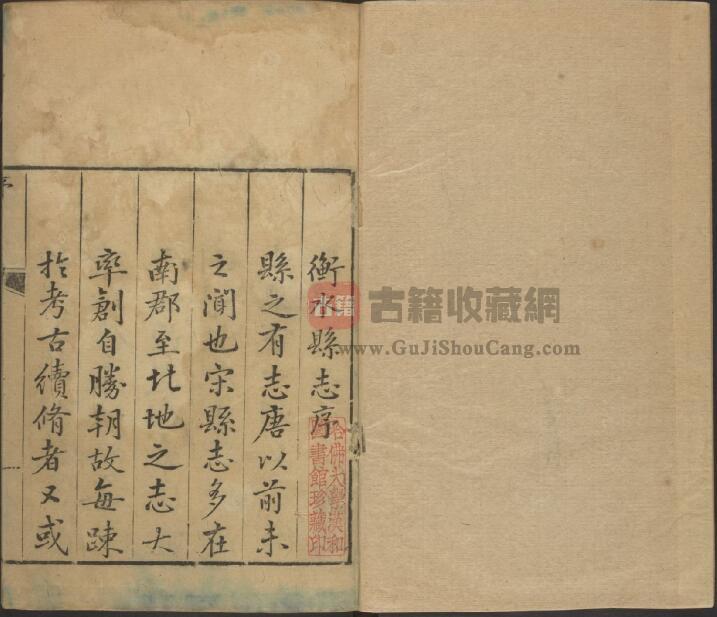 衡水縣志序
縣之有志唐以前未
之聞也宋縣志多在
南郡至北地之志大
率創自勝朝故每踈
扵考古續脩者又或
哈佛大學漢和
圖書館珍藏印
古籍
古籍收藏網
www.GuJiShouCang.com